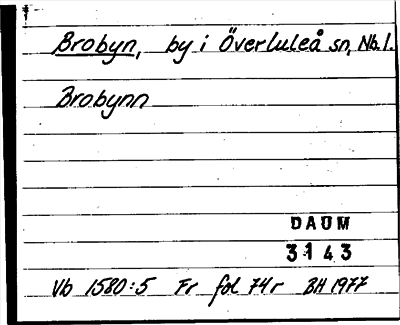 Brobyn, by i Överluleå sn, Nb.l.
Brobynn
DAUM
3143
Vb 1580:5 Fr fol 74r BH 1977